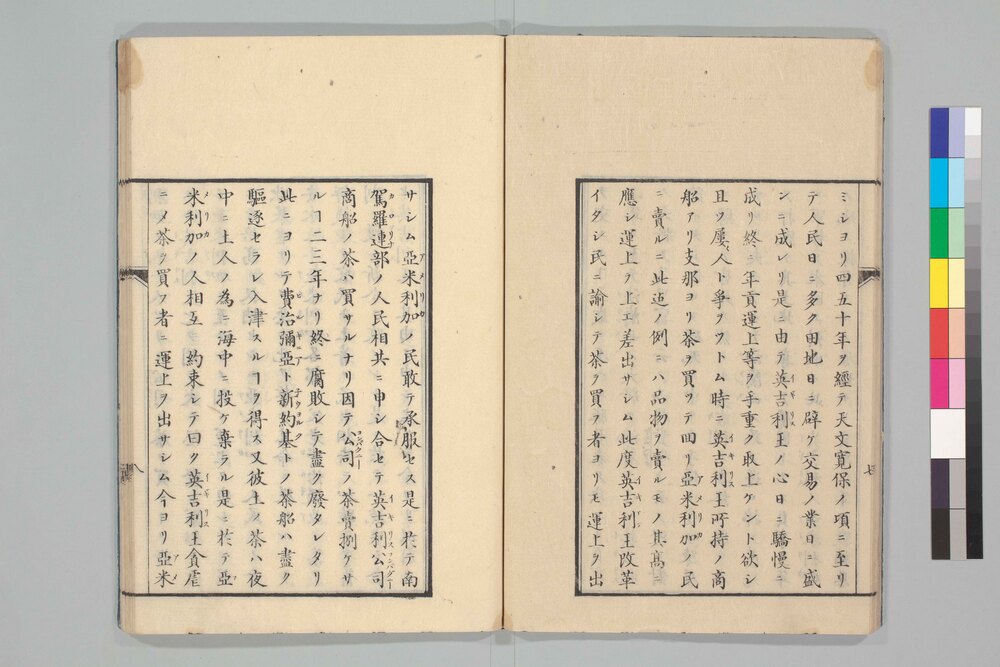 ミシヨリ四五十年ヲ經テ天文寛保ノ項ニ至リ
テ人民日ニ多ク田地日ニ辟ケ交易ノ業日ニ盛
ンニ成レリ是ニ由テ英吉利王ノ心日ニ驕慢ニ
成リ終ニ年貢運上等ヲ手重ク取上ケント欲シ
且ツ屢〻人ト爭ヲツトム時ニ英吉利王所持ノ商
船アリ支那ヨリ茶ヲ買ツテ回リ亞米利加ノ民
ニ賣ルニ此迄ノ例ニハ品物ヲ賣ルモノ其高ニ
應シ運上ヲ上エ差出サシム此度英吉利王改革
イタシ民ニ諭シテ茶ヲ買フ者ヨリモ運上ヲ出
七
サシム亞米利加ノ民敢テ承服セス是ニ於テ南
駕羅連部ノ人民相共ニ申シ合セテ英吉利公司
商船ノ茶ハ買サルナリ因テ公司ノ茶賣捌ケサ
ルヿ二三年ナリ終ニ腐敗シテ盡ク廢タレタリ
此ニヨリテ費治彌亞ト新約基トノ茶船ハ盡ク
驅逐セラレ入津スルヿヲ得ス又彼土ノ茶ハ夜
中ニ土人ノ為ニ海中ニ投ケ棄ラル是ニ於テ亞
米利加ノ人相互ニ約束シテ曰ク英吉利王貪虐
ニメ茶ヲ買フ者ニ運上ヲ出サシム今ヨリ亞米
八